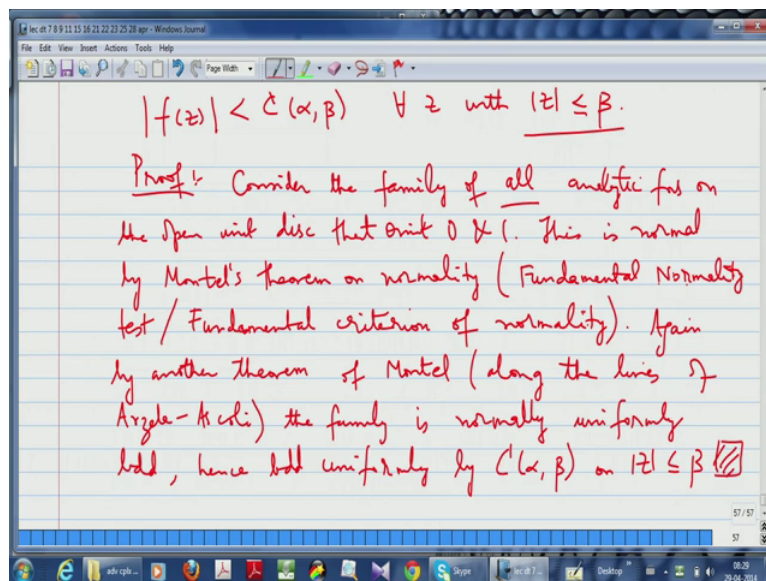 lec dt 7 8 9 11 15 16 21 22 23 25 28 apr - Windows Journal
File Edit View Insert Actions Tools Help
Page Width
|f(z)| < C(α, β) ∀ z with |z| ≤ β.
Proof: Consider the family of all analytic fns on
the open unit disc that omit 0 & 1. This is normal
by Montel's theorem on normality (Fundamental Normality
test / Fundamental criterion of normality). Again
by another theorem of Montel (along the lines of
Arzela-Ascoli) the family is normally uniformly
bdd, hence bdd uniformly by C(α, β) on |z| ≤ β
57/57
57
adv cplx ...
Skype
lec dt 7 ...
Desktop
08:29
29-04-2014